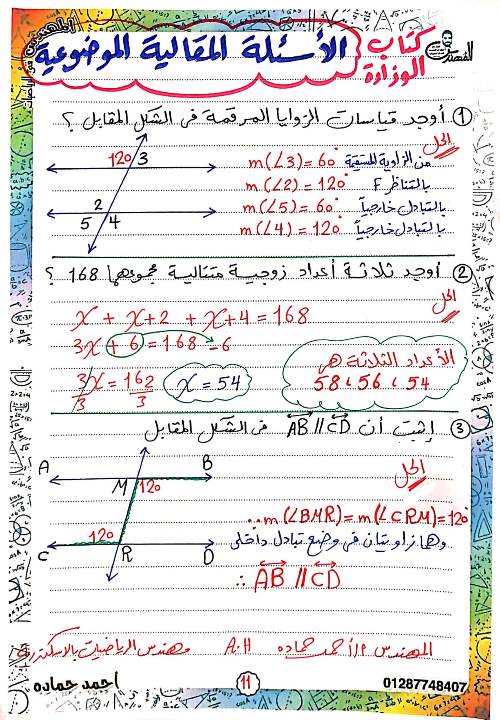 كتاب الوزارة
الأسئلة المقالية الموضوعية
المهندس
① أوجد قياسات الزوايا المرقمة فى الشكل المقابل ؟
الحل
120° 3
2
5 4
m(∠3) = 60° من الزاوية المستقيمة
m(∠2) = 120° بالتناظر F
m(∠5) = 60° بالتبادل خارجياً
m(∠4) = 120° بالتبادل خارجياً
② أوجد ثلاثة أعداد زوجية متتالية مجموعهما 168 ؟
الحل
x + x+2 + x+4 = 168
3x + 6 = 168 - 6
3x/3 = 162/3 x = 54
الأعداد الثلاثة هى
54 ، 56 ، 58
③ إثبت أن AB // CD فى الشكل المقابل
الحل
A B
M 120
120
C R D
∵ m(∠BMR) = m(∠CRM) = 120°
وهما زاويتان فى وضع تبادل داخلى
∴ AB // CD
المهندس أ/أحمد حماده A.H مهندس الرياضيات بالاسكندرية
احمد حماده 11 01287748407